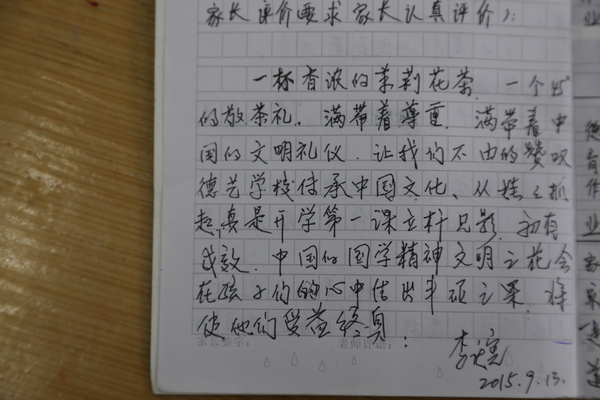 家长评价要求家长认真评价):
一杯香浓的茉莉花茶,一个45°
的敬茶礼,满带着尊重,满带着中
国的文明礼仪,让我们不由的赞叹
德艺学校传承中国文化、从娃娃抓
起,真是开学第一课立杆见影,初有
成效.中国的国学精神文明之花会
在孩子们的心中结出丰硕之果,将
使他们受益终身:
家长签字:
老师评语:
李
2015.9.13.
业
德
育
作
业
家